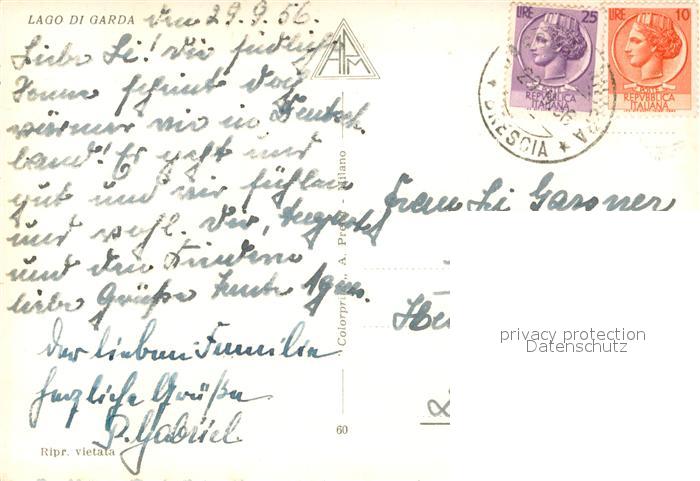 LAGO DI GARDA
den 29.9.56.
Liebe Li! Die südliche
Sonne scheint doch
wärmer wie in Deutsch-
land! Es geht uns
gut und wir fühlen
uns wohl. Dir, August
und den Kindern
liebe Grüße Tante
Der lieben Familie
herzliche Grüße
P. Gabriel
Ripr. vietata
60
Milano
Colorpri
A. Pre
LIRE 25
POSTE
REPVBBLICA
ITALIANA
LIRE 10
POSTE
REPVBBLICA
ITALIANA
BRESCIA
Frau Li Gassner
privacy protection
Datenschutz